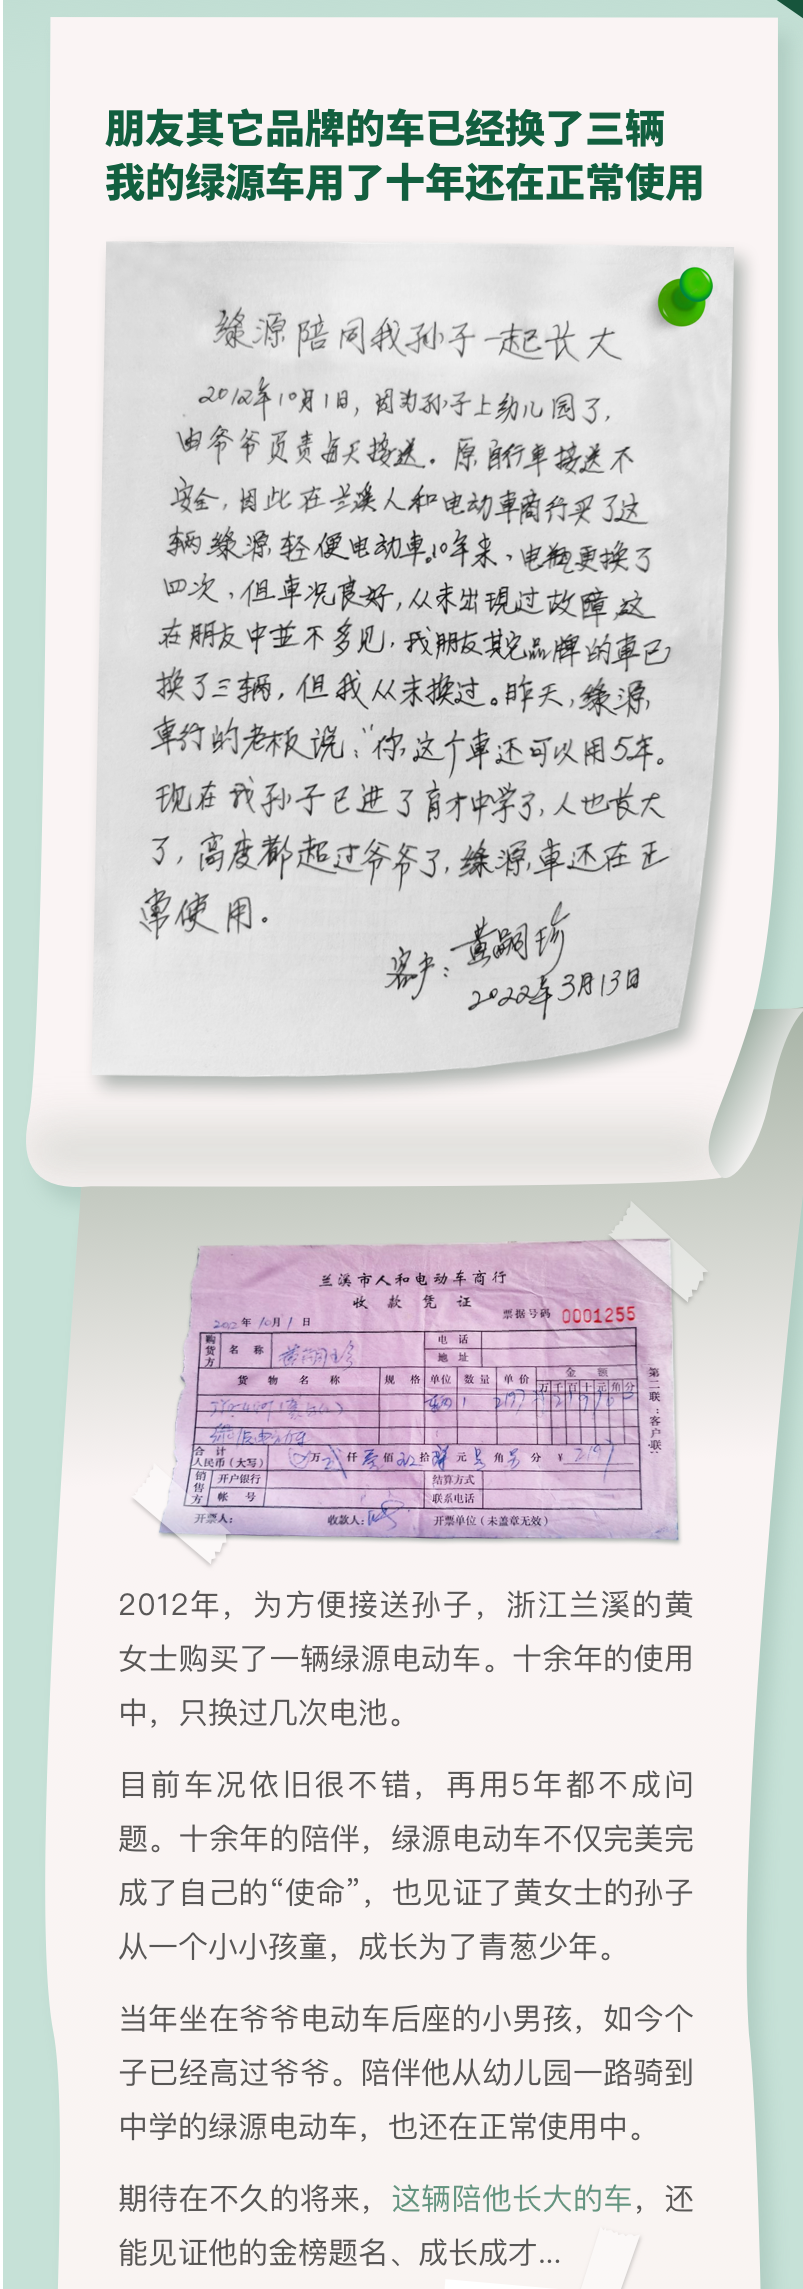 朋友其它品牌的车已经换了三辆
我的绿源车用了十年还在正常使用
绿源陪同我孙子一起长大
2012年10月1日，因为孙子上幼儿园了，
由爷爷负责每天接送。原自行車接送不
安全，因此在兰溪人和电动車商行买了这
辆绿源轻便电动車。10年来，电瓶更换了
四次，但車况良好，从未出現过故障，这
在朋友中並不多见，我朋友其它品牌的車已
换了三辆，但我从未换过。昨天，绿源
車行的老板说：“你这个車还可以用5年。
现在我孙子已进了育才中学了，人也长大
了，高度都超过爷爷了，绿源車还在正
常使用。
客户：黄嗣珍
2022年3月13日
兰溪市人和电动车商行
收款凭证
票据号码 0001255
2012年10月1日
购货方 名称 黄嗣珍 电话
地址
货物名称 规格 单位 数量 单价 金额
万千百十元角分
辆 1 2197
绿源电动车
合计人民币（大写） 万 仟 壹佰 玖拾 元 角 分 ¥ 2197
销售方 开户银行 结算方式
帐号 联系电话
开票人： 收款人： 开票单位（未盖章无效）
第二联：客户联
2012年，为方便接送孙子，浙江兰溪的黄
女士购买了一辆绿源电动车。十余年的使用
中，只换过几次电池。
目前车况依旧很不错，再用5年都不成问
题。十余年的陪伴，绿源电动车不仅完美完
成了自己的“使命”，也见证了黄女士的孙子
从一个小小孩童，成长为了青葱少年。
当年坐在爷爷电动车后座的小男孩，如今个
子已经高过爷爷。陪伴他从幼儿园一路骑到
中学的绿源电动车，也还在正常使用中。
期待在不久的将来，这辆陪他长大的车，还
能见证他的金榜题名、成长成才...